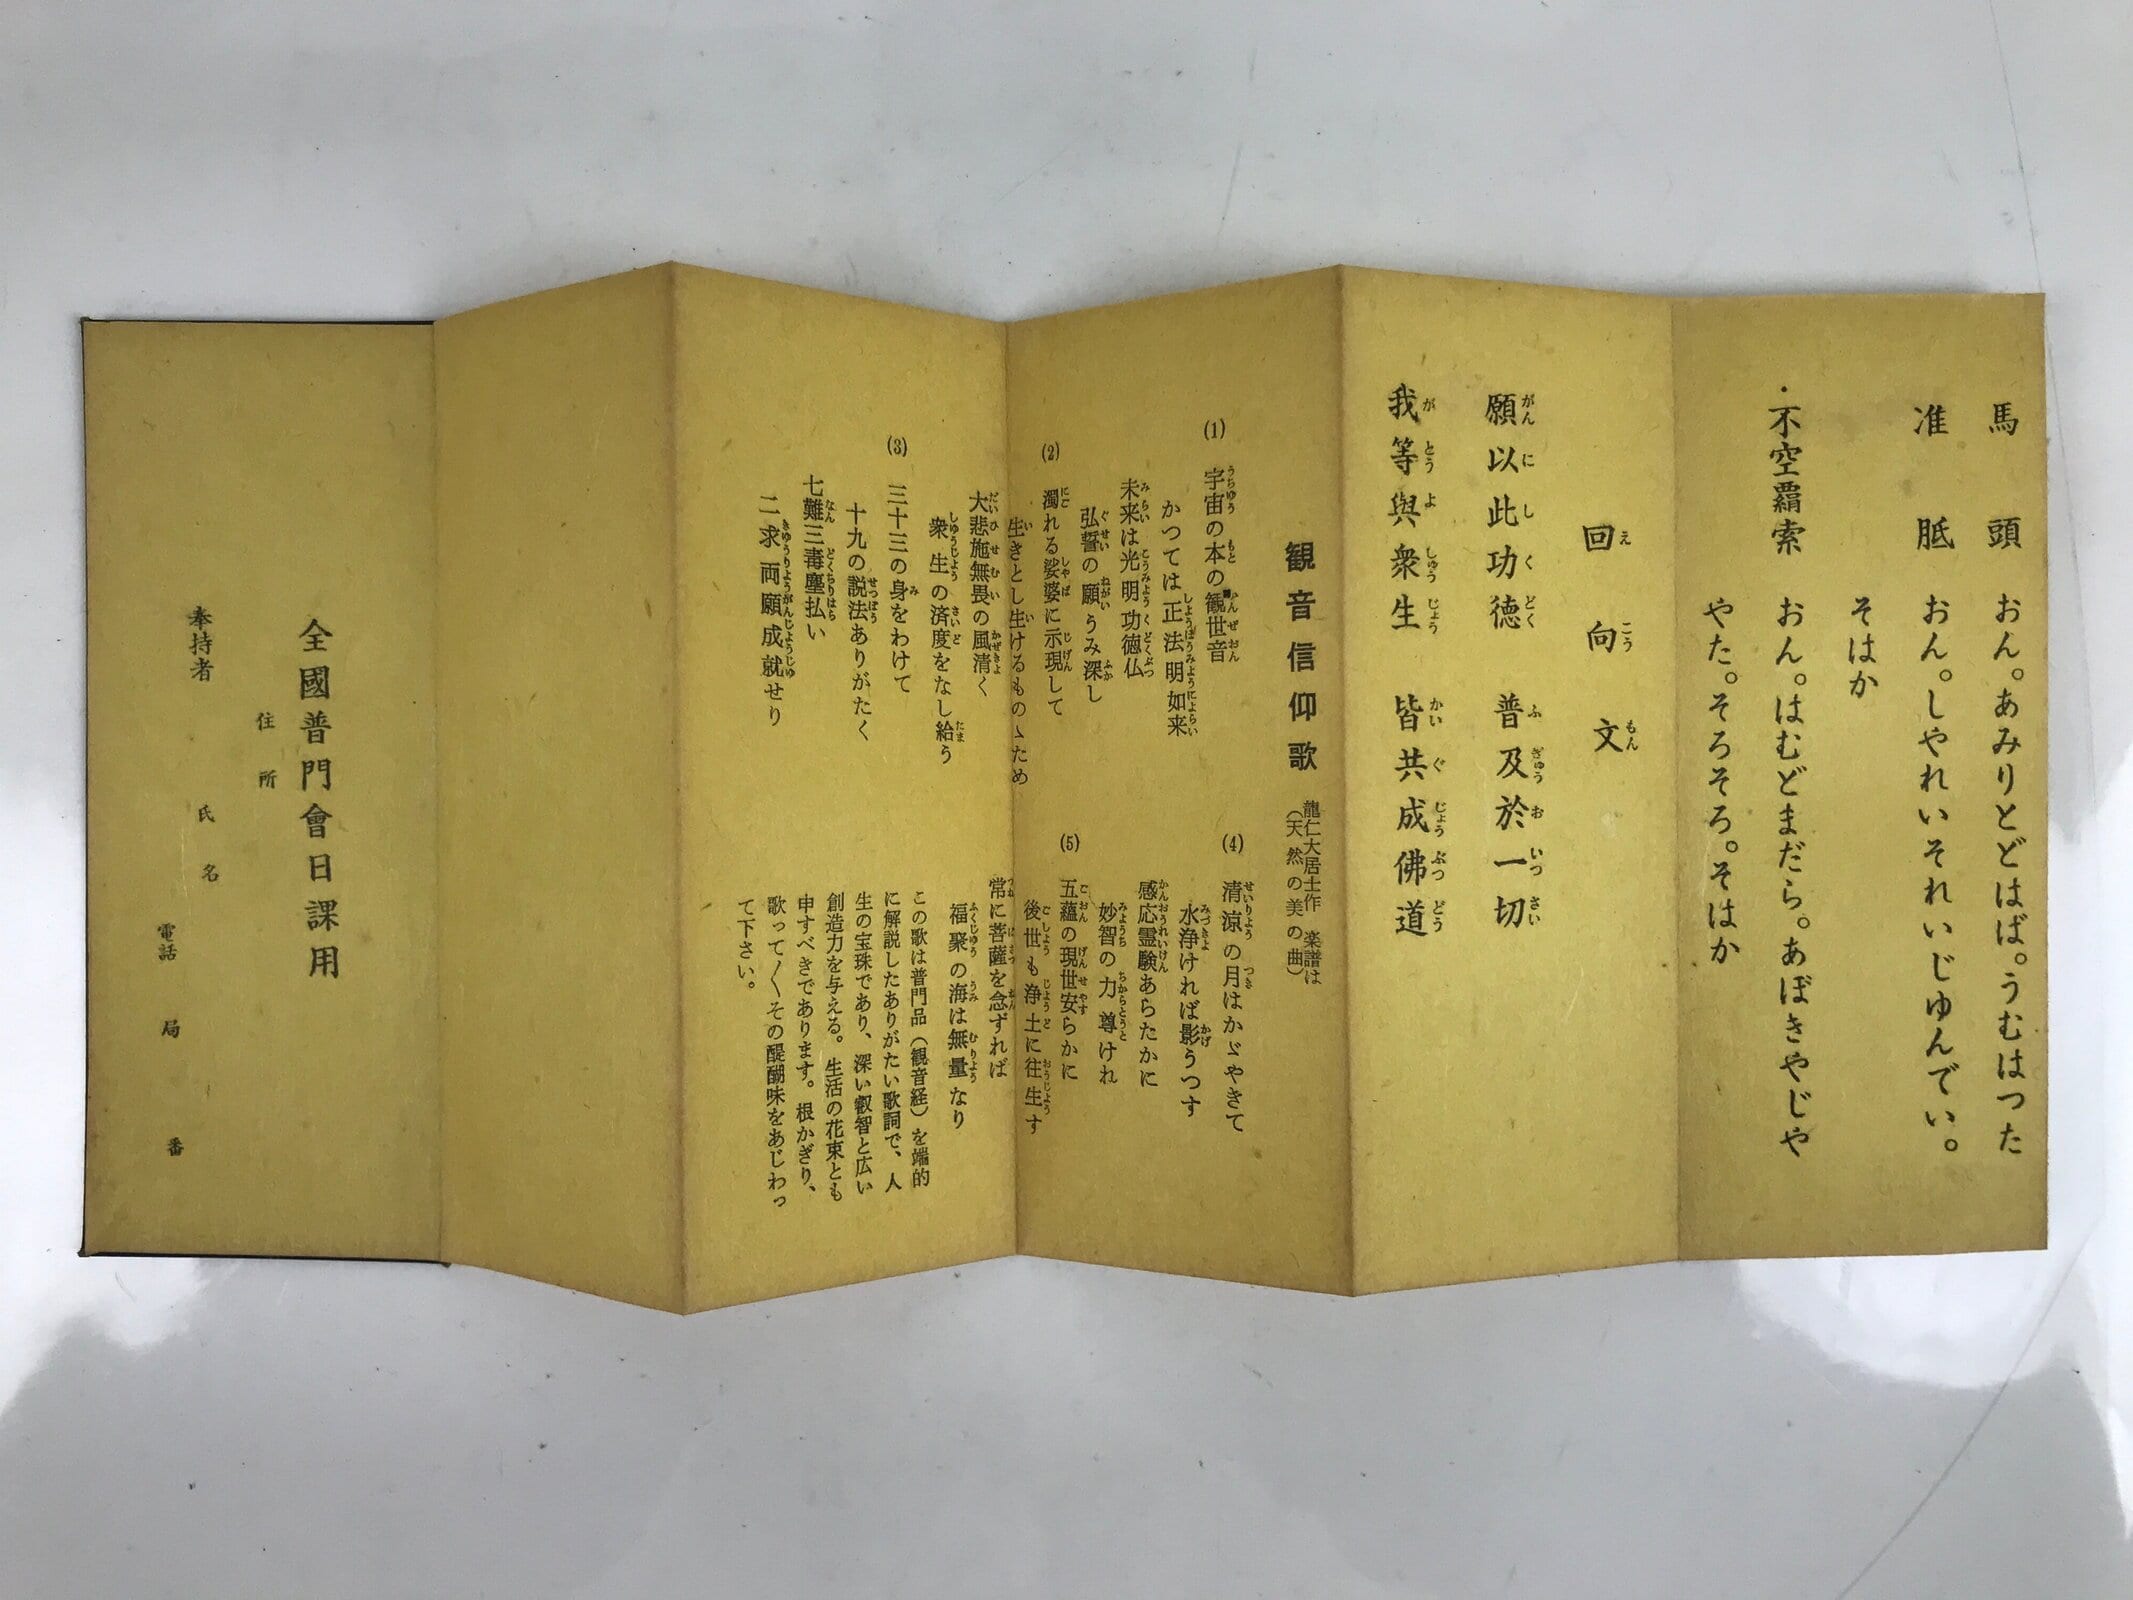 馬頭 おん。あみりとどはば。うむはつた
准胝 おん。しやれいそれいじゆんでい。
そはか
・不空羂索 おん。はむどまだら。あぼきやじや
やた。そろそろ。そはか
回向文
えこうもん
願以此功徳 普及於一切
がんにしくどく ふぎゅうおいつさい
我等與衆生 皆共成佛道
がとうよしゅうじょう かいぐじょうぶつどう
観音信仰歌
龍仁大居士作 楽譜は
(天然の美の曲)
(1) 宇宙の本の観世音
かつては正法明如来
未来は光明功徳仏
弘誓の願うみ深し
(2) 濁れる娑婆に示現して
生きとし生けるものゝため
大悲施無畏の風清く
衆生の済度をなし給う
(3) 三十三の身をわけて
十九の説法ありがたく
七難三毒塵払い
二求両願成就せり
(4) 清涼の月はかゞやきて
水浄ければ影うつす
感応霊験あらたかに
妙智の力尊けれ
(5) 五蘊の現世安らかに
後世も浄土に往生す
常に菩薩を念ずれば
福聚の海は無量なり
この歌は普門品(観音経)を端的
に解説したありがたい歌詞で、人
生の宝珠であり、深い叡智と広い
創造力を与える。生活の花束とも
申すべきであります。根かぎり、
歌って〳〵その醍醐味をあじわっ
て下さい。
全國普門會日課用
住所
奉持者 氏名
電話 局 番